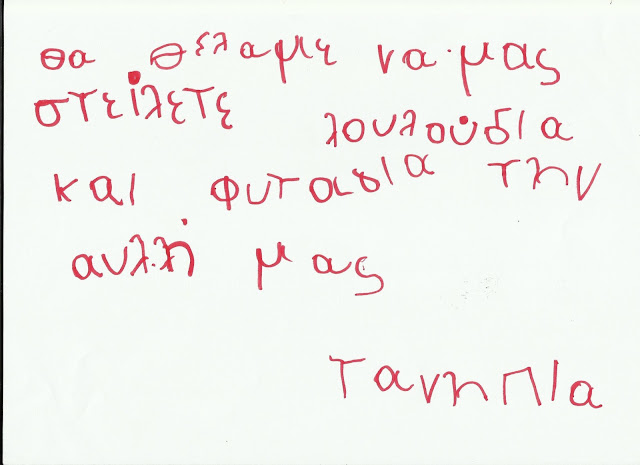 θα θέλαμε να μας
στείλετε λουλούδια
και φυτασια την
αυλλή μας
Τα νηπια